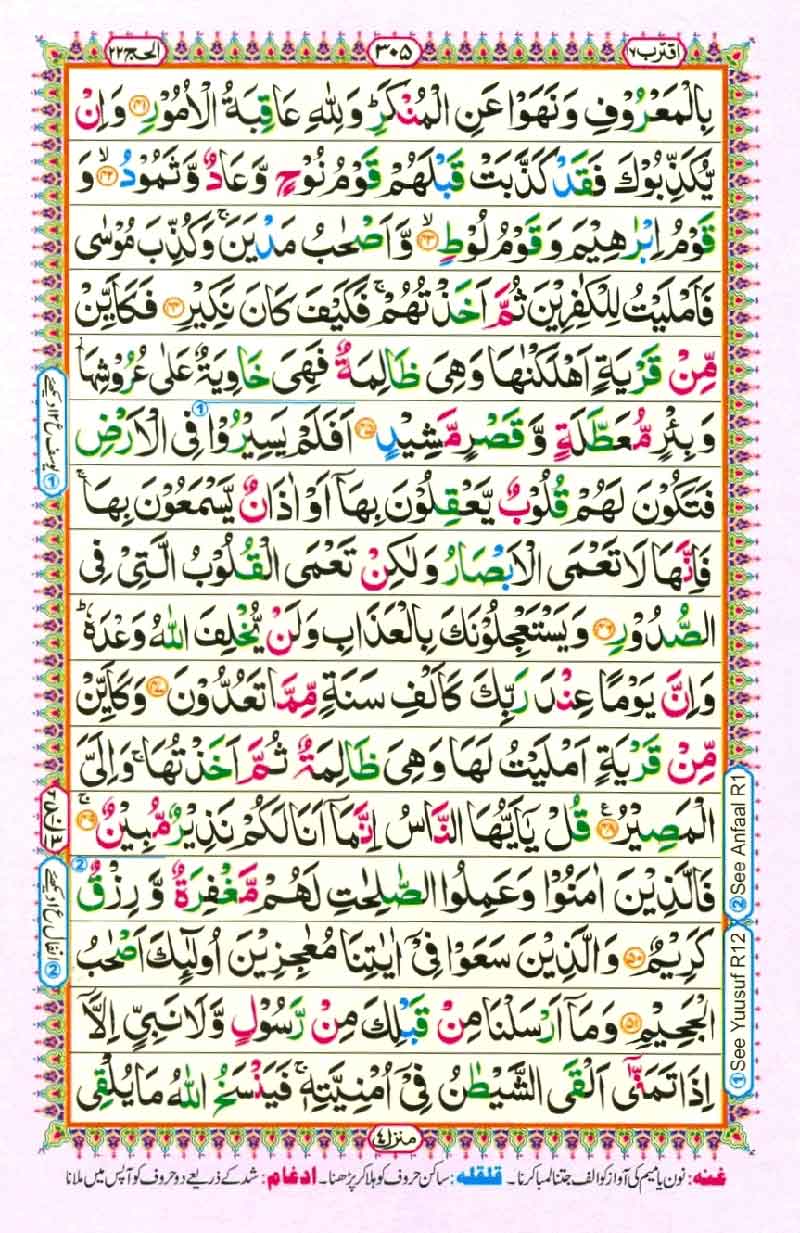 اقترب ٦
٣٠٥
الحج ٢٢
بِالْمَعْرُوْفِ وَنَهَوْا عَنِ الْمُنْكَرِ ؕ وَلِلّٰهِ عَاقِبَةُ الْاُمُوْرِ ﴿۴۱﴾ وَاِنْ
يُّكَذِّبُوْكَ فَقَدْ كَذَّبَتْ قَبْلَهُمْ قَوْمُ نُوْحٍ وَّعَادٌ وَّثَمُوْدُ ۙ﴿۴۲﴾ وَ
قَوْمُ اِبْرٰهِيْمَ وَقَوْمُ لُوْطٍ ۙ﴿۴۳﴾ وَّاَصْحٰبُ مَدْيَنَ ۚ وَكُذِّبَ مُوْسٰى
فَاَمْلَيْتُ لِلْكٰفِرِيْنَ ثُمَّ اَخَذْتُهُمْ ۚ فَكَيْفَ كَانَ نَكِيْرِ ﴿۴۴﴾ فَكَاَيِّنْ
مِّنْ قَرْيَةٍ اَهْلَكْنٰهَا وَهِىَ ظَالِمَةٌ فَهِىَ خَاوِيَةٌ عَلٰى عُرُوْشِهَا
وَبِئْرٍ مُّعَطَّلَةٍ وَّقَصْرٍ مَّشِيْدٍ ﴿۴۵﴾ اَفَلَمْ يَسِيْرُوْا فِى الْاَرْضِ ①
فَتَكُوْنَ لَهُمْ قُلُوْبٌ يَّعْقِلُوْنَ بِهَاۤ اَوْ اٰذَانٌ يَّسْمَعُوْنَ بِهَا ۚ
فَاِنَّهَا لَا تَعْمَى الْاَبْصَارُ وَلٰكِنْ تَعْمَى الْقُلُوْبُ الَّتِىْ فِى
الصُّدُوْرِ ﴿۴۶﴾ وَيَسْتَعْجِلُوْنَكَ بِالْعَذَابِ وَلَنْ يُّخْلِفَ اللّٰهُ وَعْدَهٗ ؕ
وَاِنَّ يَوْمًا عِنْدَ رَبِّكَ كَاَلْفِ سَنَةٍ مِّمَّا تَعُدُّوْنَ ﴿۴۷﴾ وَكَاَيِّنْ
مِّنْ قَرْيَةٍ اَمْلَيْتُ لَهَا وَهِىَ ظَالِمَةٌ ثُمَّ اَخَذْتُهَا ۚ وَاِلَىَّ
الْمَصِيْرُ ﴿۴۸﴾ قُلْ يٰۤاَيُّهَا النَّاسُ اِنَّمَاۤ اَنَا لَكُمْ نَذِيْرٌ مُّبِيْنٌ ۚ﴿۴۹﴾
فَالَّذِيْنَ اٰمَنُوْا وَعَمِلُوا الصّٰلِحٰتِ لَهُمْ مَّغْفِرَةٌ وَّرِزْقٌ ②
كَرِيْمٌ ﴿۵۰﴾ وَالَّذِيْنَ سَعَوْا فِىْۤ اٰيٰتِنَا مُعٰجِزِيْنَ اُولٰٓئِكَ اَصْحٰبُ
الْجَحِيْمِ ﴿۵۱﴾ وَمَاۤ اَرْسَلْنَا مِنْ قَبْلِكَ مِنْ رَّسُوْلٍ وَّلَا نَبِىٍّ اِلَّاۤ
اِذَا تَمَنّٰىۤ اَلْقَى الشَّيْطٰنُ فِىْۤ اُمْنِيَّتِهٖ ۚ فَيَنْسَخُ اللّٰهُ مَا يُلْقِى
① یوسف ع ۱۲ دیکھئے
② انفال ع ۱ دیکھئے
② See Anfaal R1
① See Yuusuf R12
منزل ٤
غنه: نون یا میم کی آواز کو الف جتنا لمبا کرنا۔ قلقله: ساکن حروف کو ہلا کر پڑھنا۔ ادغام: شد کے ذریعے دو حروف کو آپس میں ملانا